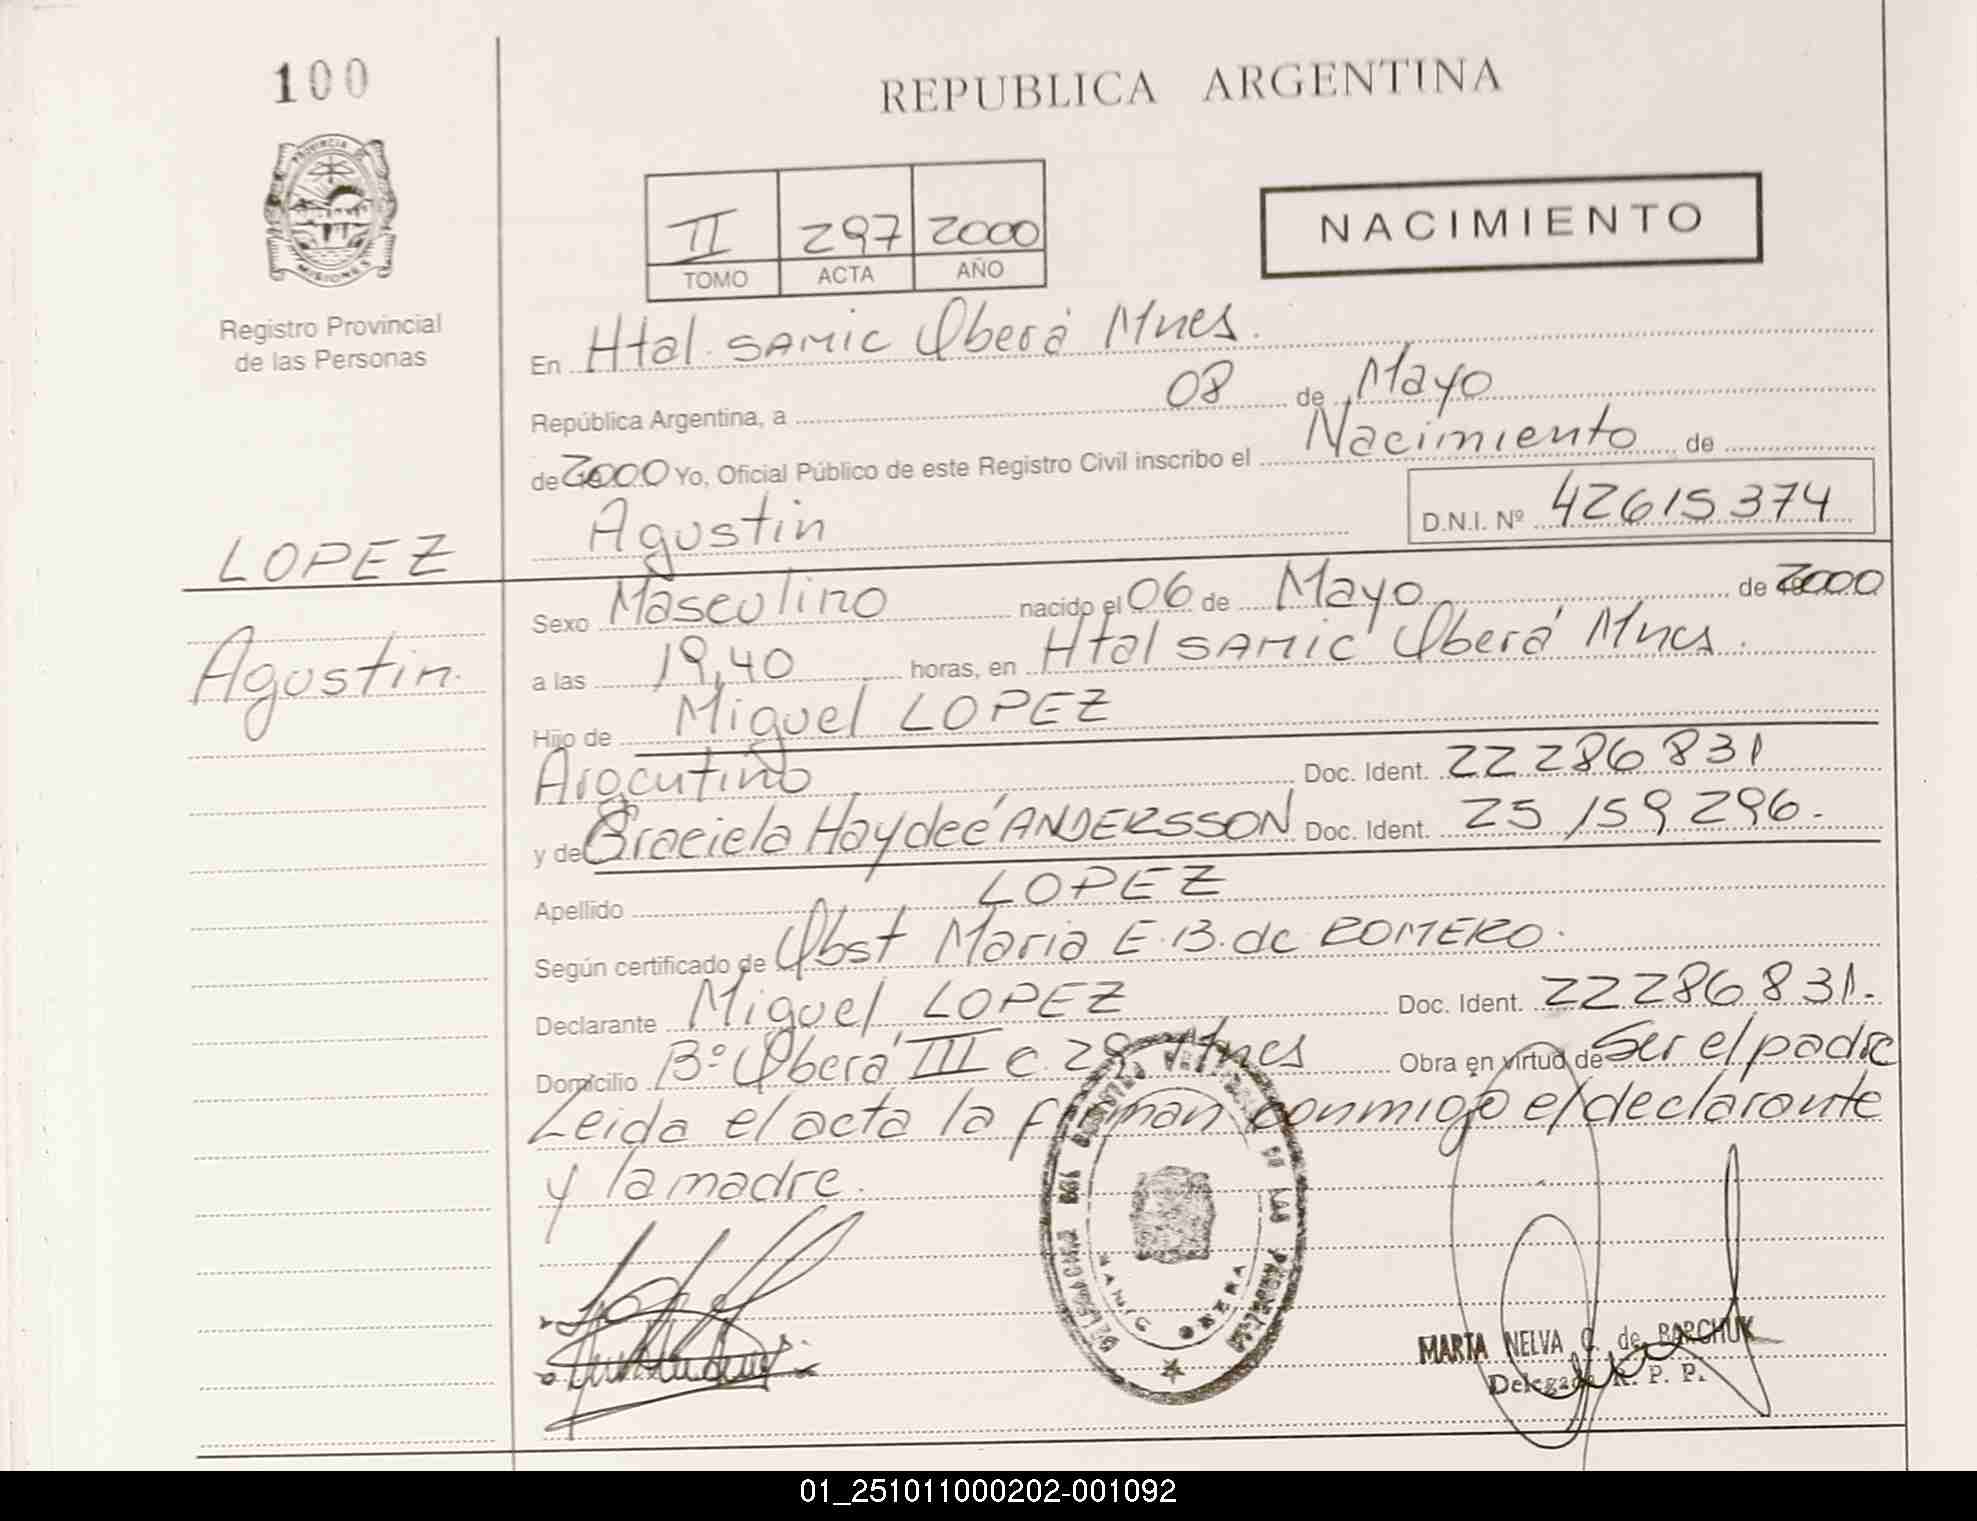 100
REPUBLICA ARGENTINA
PROVINCIA DE
MISIONES
Registro Provincial
de las Personas
II 297 2000
TOMO ACTA AÑO
NACIMIENTO
En Htal. SAMIC Oberá Mnes.
República Argentina, a 08 de Mayo
de 2000 Yo, Oficial Público de este Registro Civil inscribo el Nacimiento de
Agustin D.N.I. Nº 42615374
LOPEZ
Agustin.
Sexo Masculino nacido el 06 de Mayo de 2000
a las 19,40 horas, en Htal SAMIC Oberá Mnes.
Hijo de Miguel LOPEZ
Argentino Doc. Ident. 22286831
y de Graciela Haydeé ANDERSSON Doc. Ident. 25159296.
Apellido LOPEZ
Según certificado de Obst Maria E.B. de ROMERO.
Declarante Miguel LOPEZ Doc. Ident. 22286831.
Domicilio Bº Oberá III c. 28 Mnes Obra en virtud de Ser el padre
Leida el acta la firman conmigo el declarante
y la madre.
DE LAS PERSONAS
OBERA
MARTA NELVA C. de BARCHUK
Delegada R. P. P.
01_251011000202-001092